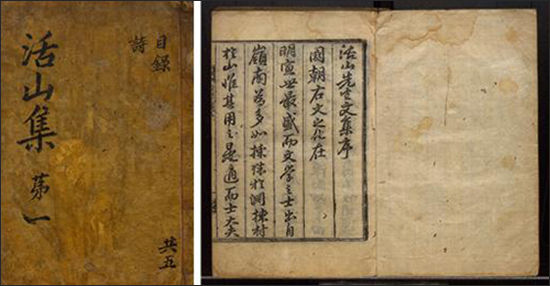 目錄
詩
活山集 第一
共五
活山先生文集序
國朝右文之化在
明宣世最盛而文学之士出自
嶺南為多如採珠於淵揀材
於山惟其用之是適而士大夫